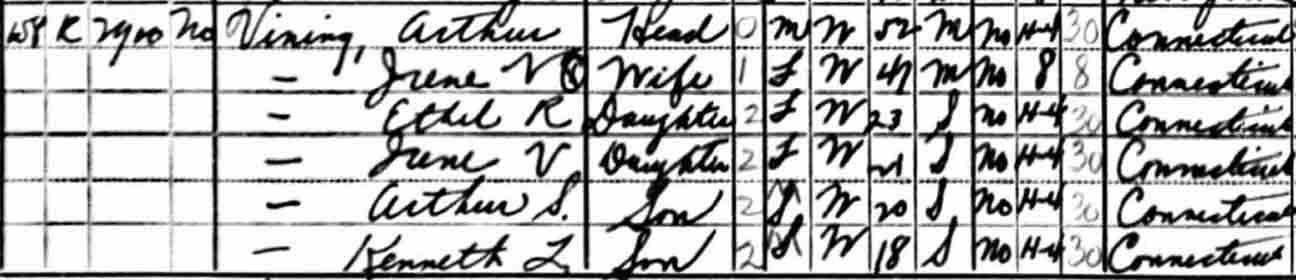 R No Vining, Arthur Head 0 M W 52 M No H-4 30 Connecticut
— Irene V ⓧ Wife 1 F W 47 M No 8 8 Connecticut
— Ethel R Daughter 2 F W 23 S No H-4 30 Connecticut
— Irene V Daughter 2 F W 21 S No H-4 30 Connecticut
— Arthur S. Son 2 W 20 S No H-4 30 Connecticut
— Kenneth L Son 2 W 18 S No H-4 30 Connecticut